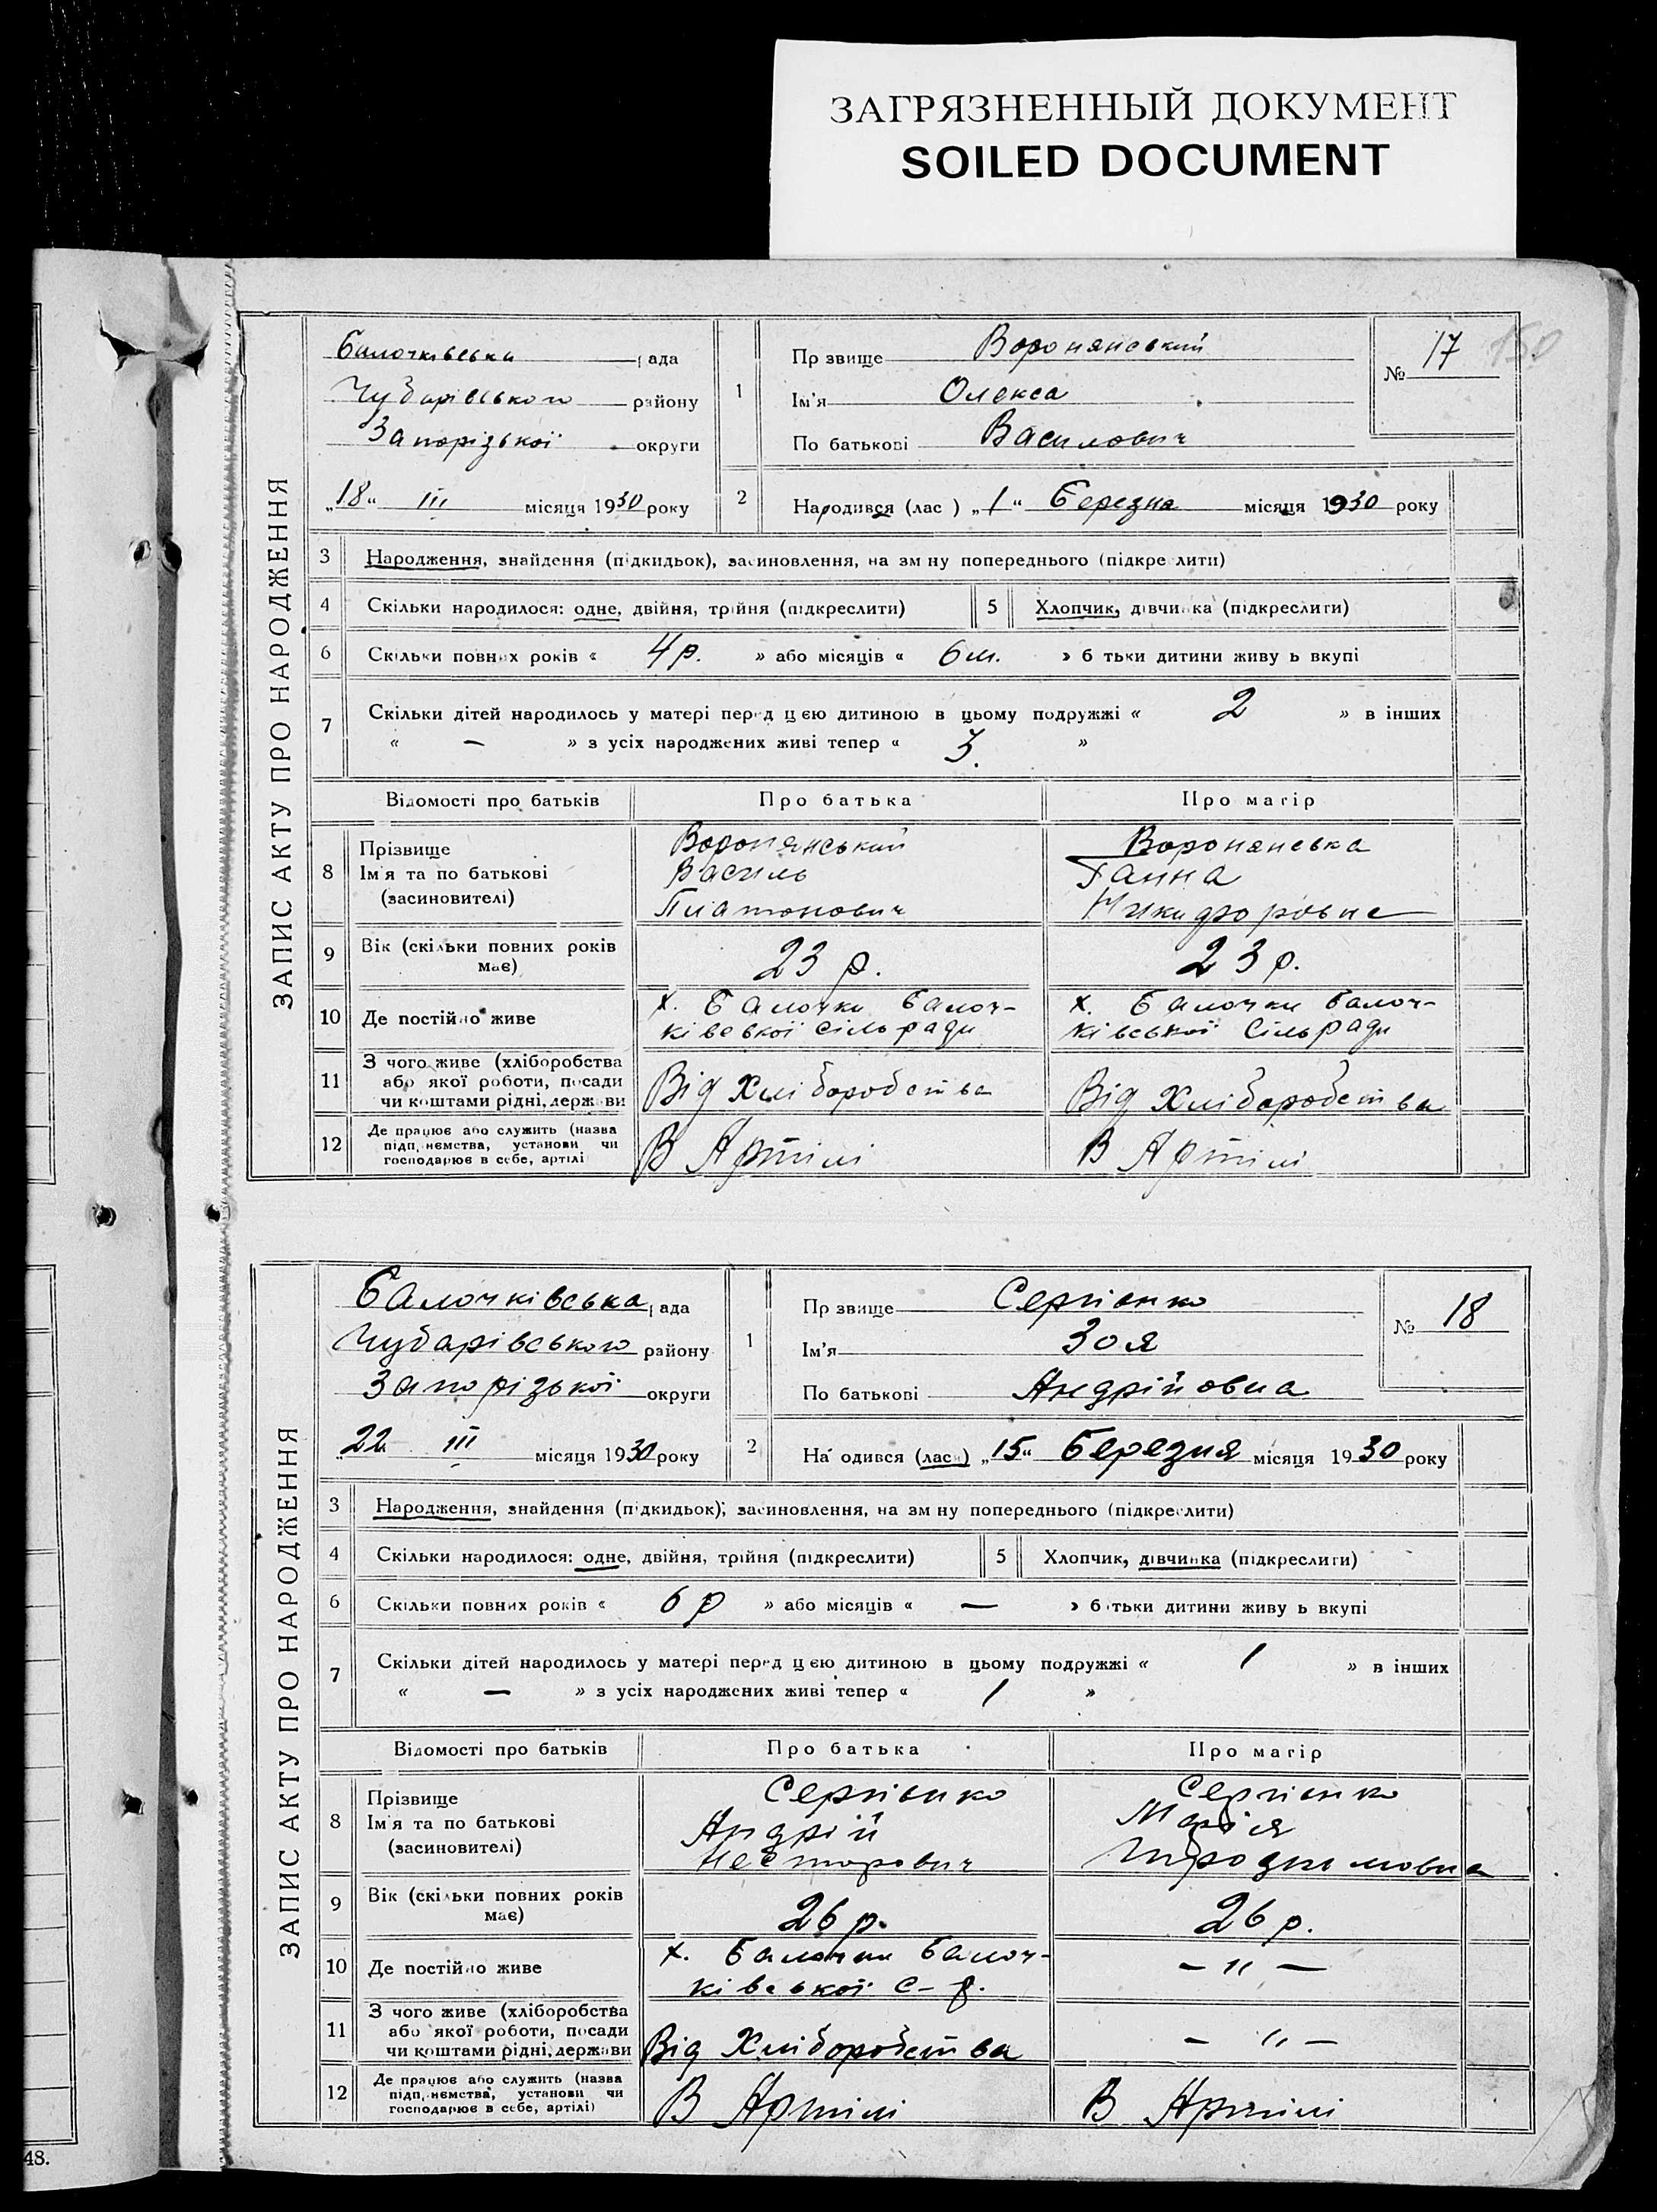 ЗАГРЯЗНЕННЫЙ ДОКУМЕНТ
SOILED DOCUMENT
150
ЗАПИС АКТУ ПРО НАРОДЖЕННЯ
Балочківська рада
Чубарівського району
Запорізької округи
„18“ III місяця 1930 року
1 Пр звище Воронянський
Ім'я Олекса
По батькові Василович
№ 17
2 Народився (лас ) „1“ Березня місяця 1930 року
3 Народження, знайдення (підкидьок), засиновлення, на зм ну попереднього (підкре лити)
4 Скільки народилося: одне, двійня, трійня (підкреслити) 5 Хлопчик, дівчинка (підкреслити)
6 Скільки повних років « 4 р. » або місяців « 6 м. » б тьки дитини живу ь вкупі
7 Скільки дітей народилось у матері перед цією дитиною в цьому подружжі « 2 » в інших
« — » з усіх народжених живі тепер « 3. »
Відомості про батьків Про батька Про матір
8 Прізвище Воронянський Воронянська
Ім'я та по батькові Василь Ганна
(засиновителі) Платонович Никифоровна
9 Вік (скільки повних років має) 23 р. 23 р.
10 Де постійно живе х. Балочки Балоч- х. Балочки Балоч-
ківської сільради ківської сільради
11 З чого живе (хліборобства
або якої роботи, посади Від Хліборобства Від Хліборобства
чи коштами рідні, держави
12 Де працює або служить (назва
підприємства, установи чи В Артілі В Артілі
господарює в себе, артілі
ЗАПИС АКТУ ПРО НАРОДЖЕННЯ
Балочківська рада
Чубарівського району
Запорізької округи
„22 III місяця 1930 року
1 Пр звище Сергієнко
Ім'я Зоя
По батькові Андрійовна
№ 18
2 На одився (лася) „15“ Березня місяця 1930 року
3 Народження, знайдення (підкидьок), засиновлення, на зм ну попереднього (підкреслити)
4 Скільки народилося: одне, двійня, трійня (підкреслити) 5 Хлопчик, дівчинка (підкреслити)
6 Скільки повних років « 6 р » або місяців « — » б тьки дитини живу ь вкупі
7 Скільки дітей народилось у матері перед цією дитиною в цьому подружжі « 1 » в інших
« — » з усіх народжених живі тепер « 1 »
Відомості про батьків Про батька Про матір
8 Прізвище Сергієнко Сергієнко
Ім'я та по батькові Андрій Марія
(засиновителі) Несторович
9 Вік (скільки повних років має) 26 р. 26 р.
10 Де постійно живе х. Балочки Балоч- — " —
ківської с-р.
11 З чого живе (хліборобства
або якої роботи, посади Від Хліборобства — " —
чи коштами рідні, держави
12 Де працює або служить (назва
підприємства, установи чи В Артілі В Артілі
господарює в себе, артілі)
48.